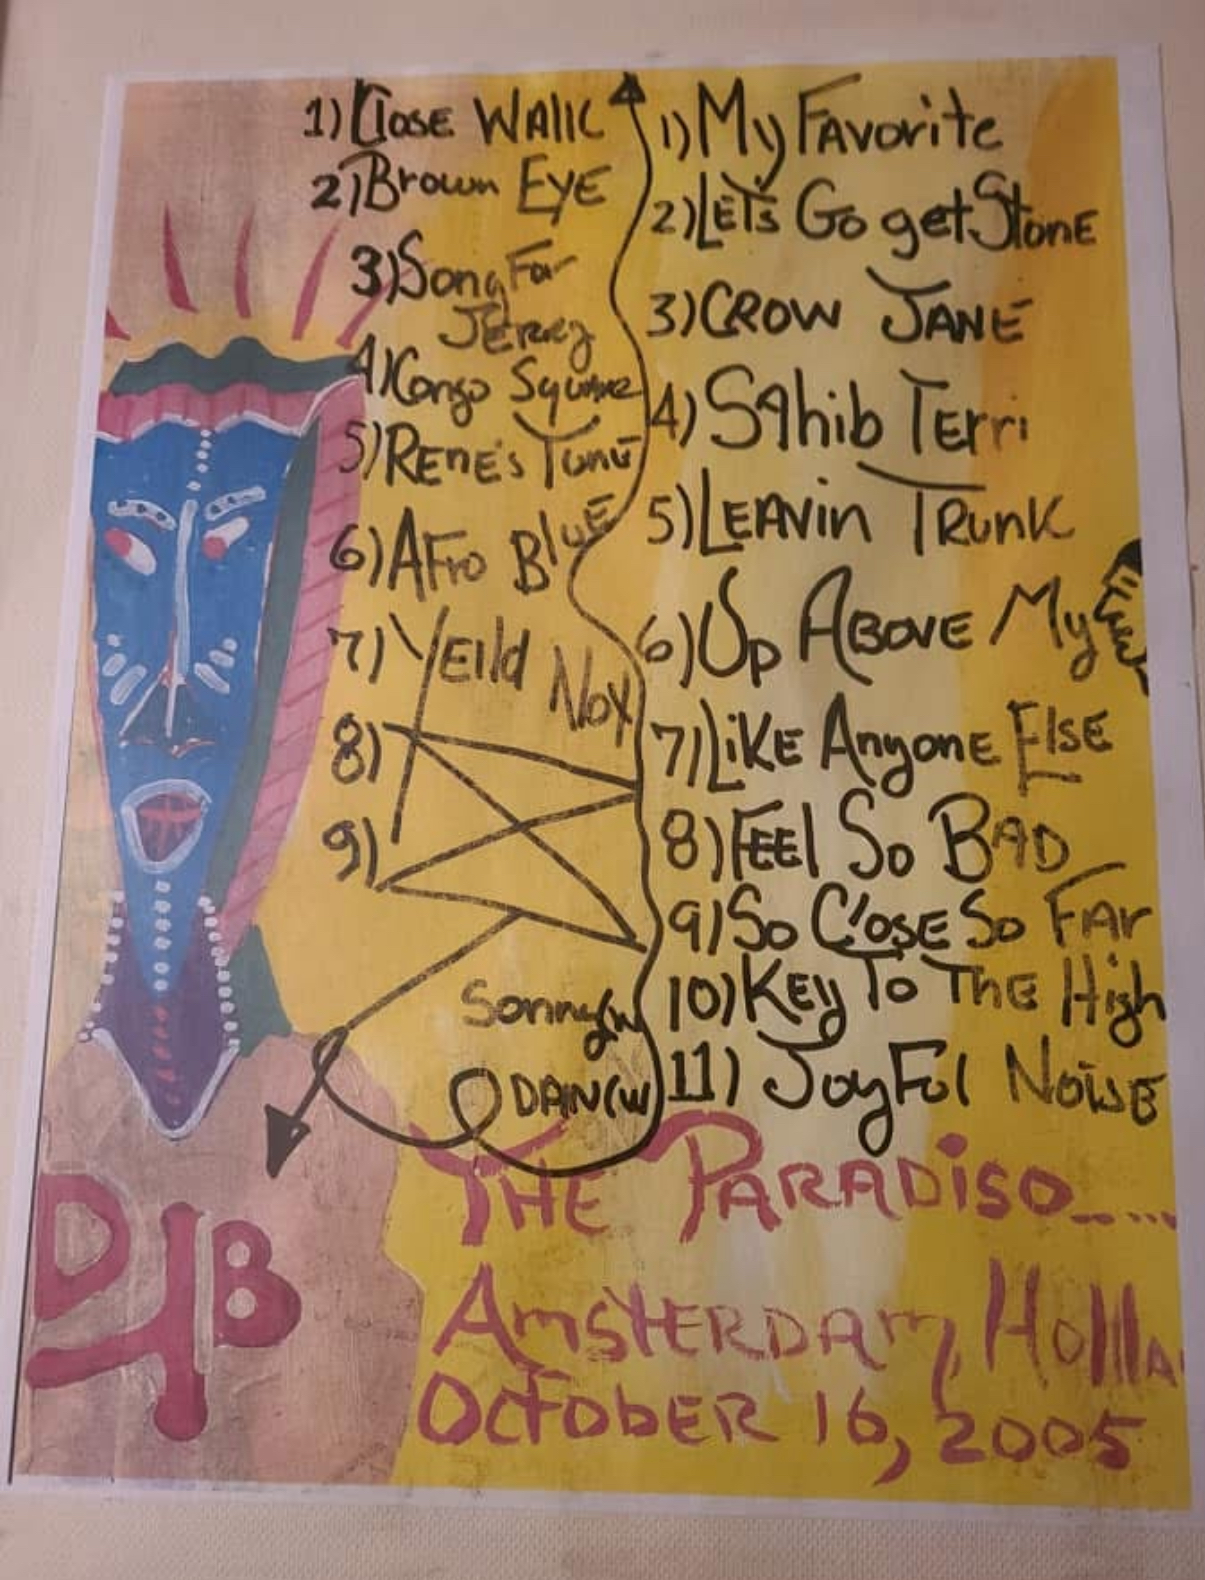 1) Close Walk
2) Brown Eye
3) Song For
Jerry
4) Congo Square
5) Rene's Tune
6) Afro Blue
7) Yeild Nox
8)
9)
Sonny
DAN(W
1) My Favorite
2) Let's Go get Stone
3) CROW JANE
4) Sahib Terri
5) LEAVin TRunK
6) Up ABOVE My
7) LiKE Anyone Else
8) FEEl So BAD
9) So Close So FAr
10) KEy To THE High
11) JoyFul NoisE
THE PARADiSO.....
AmSTERDAm, HollA
OctobER 16, 2005
DTB